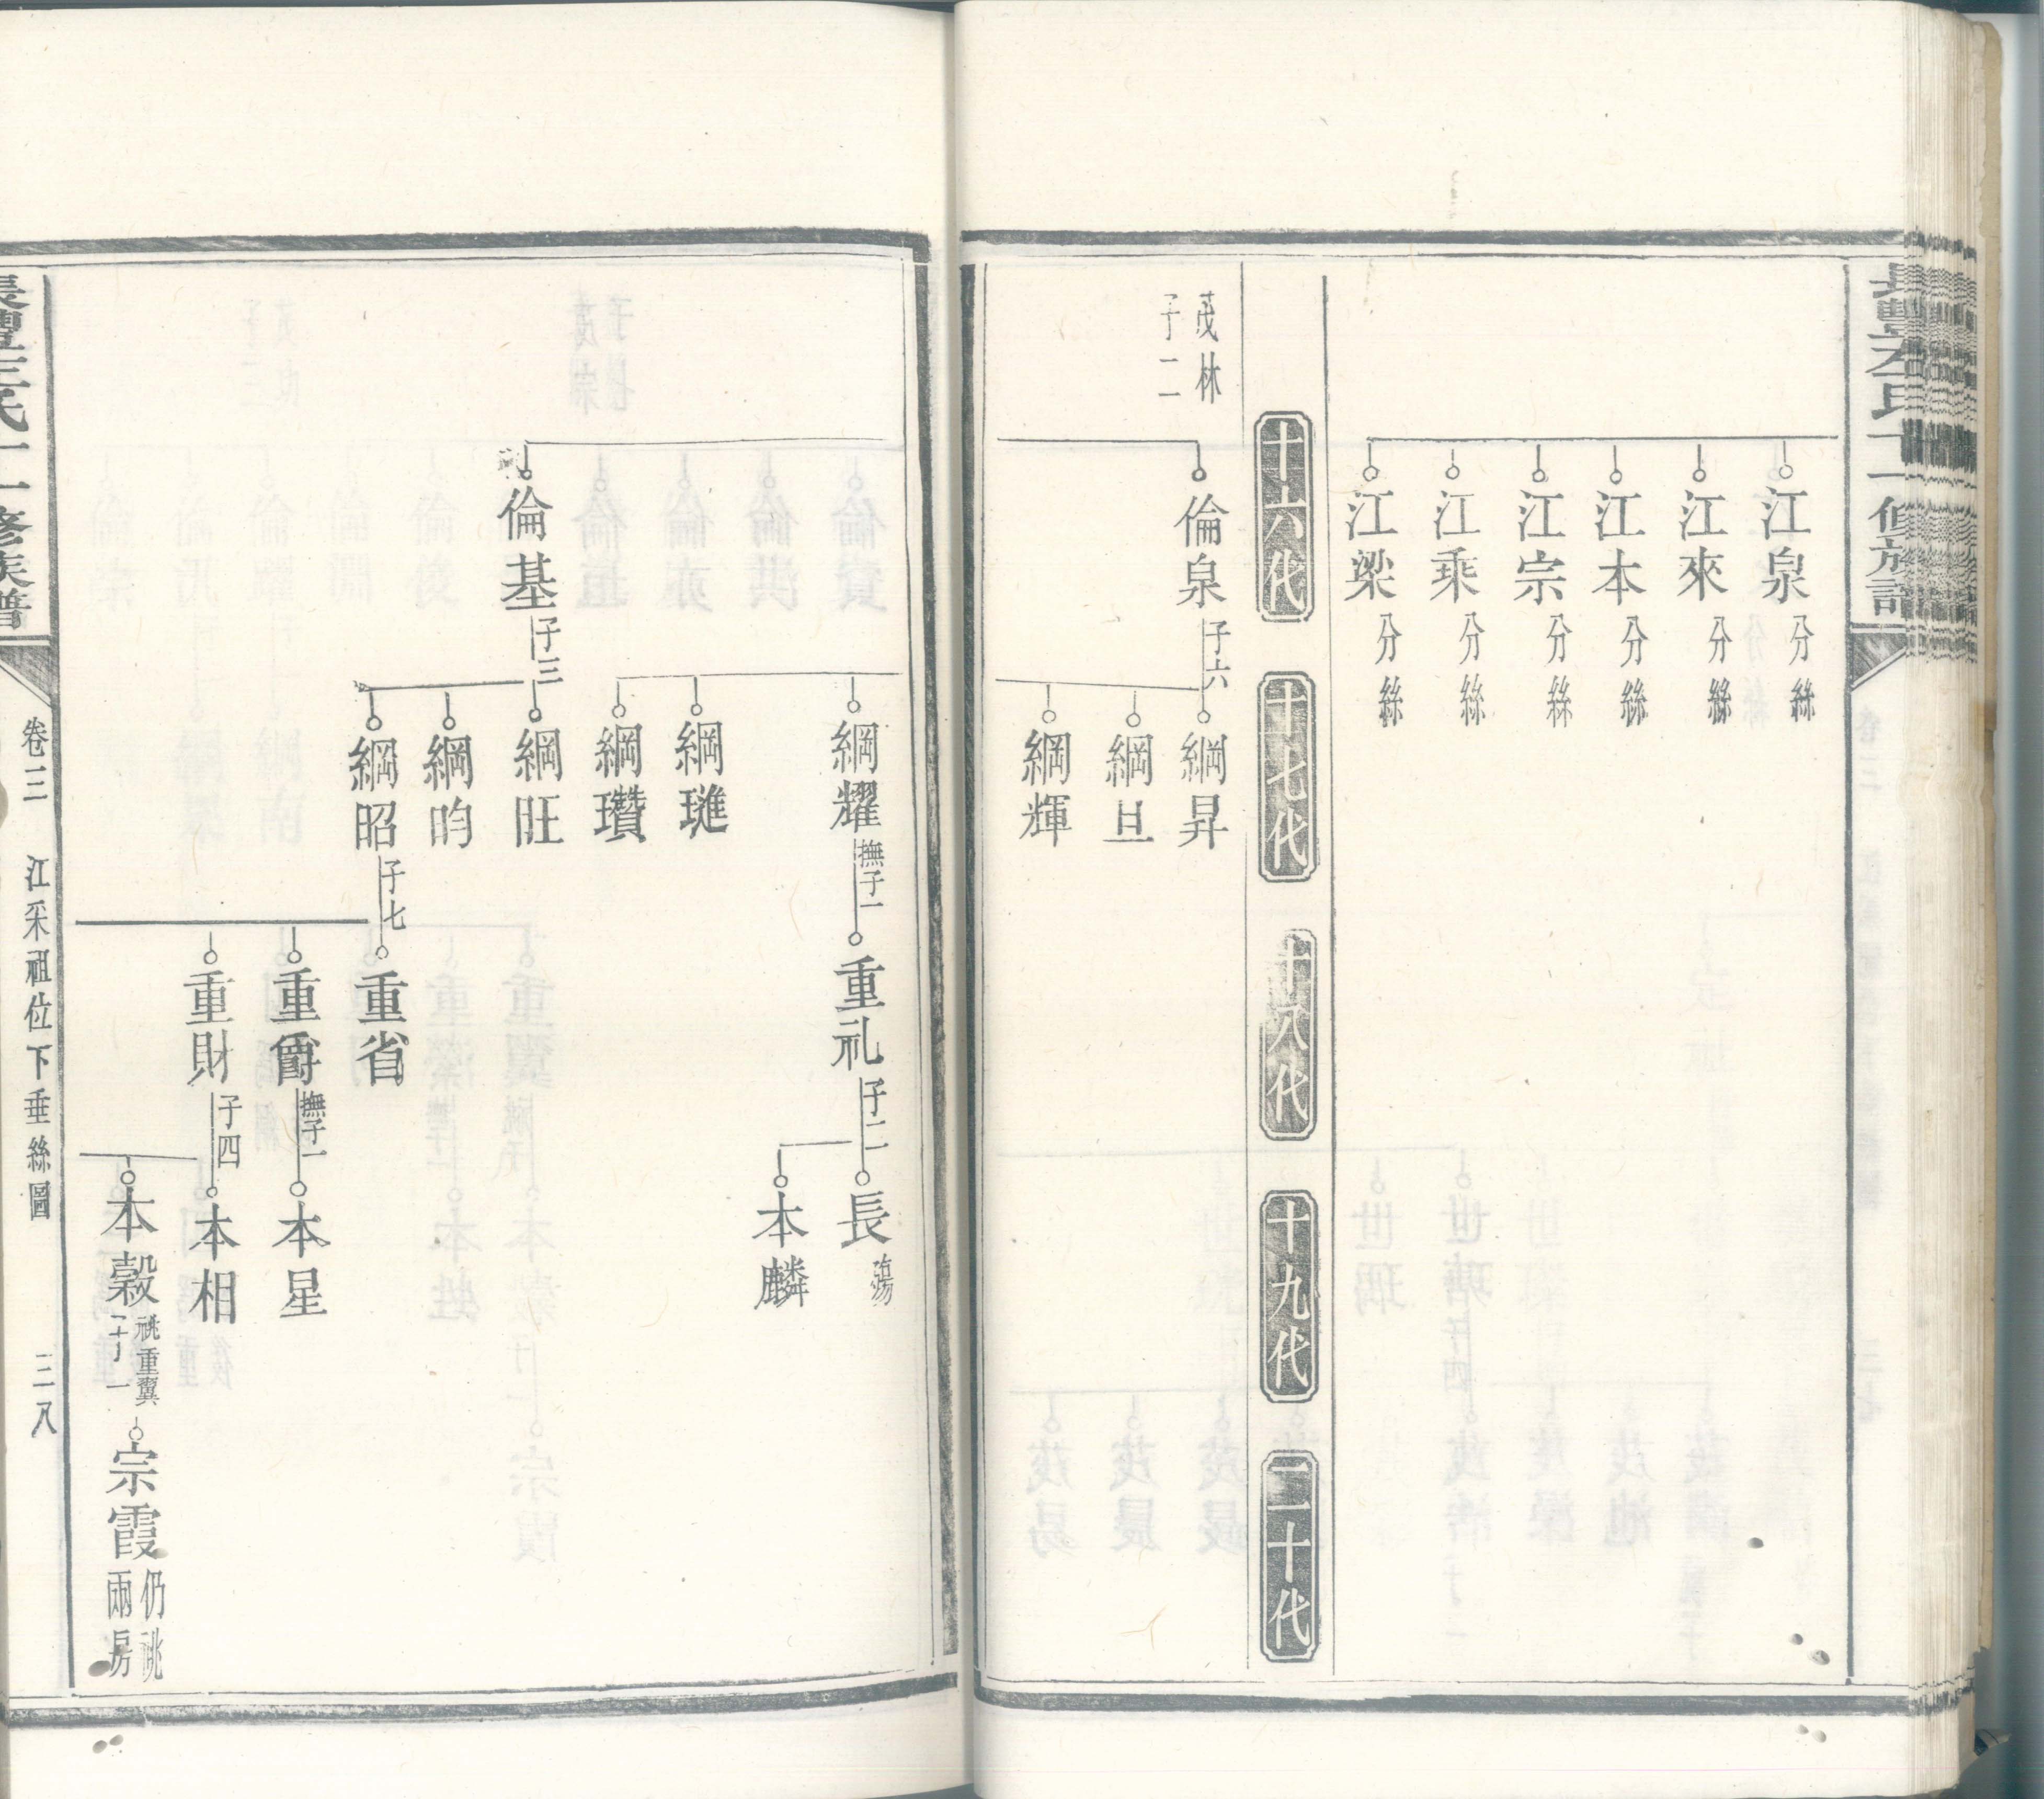 江泉 分絲
江來 分絲
江本 分絲
江宗 分絲
江乘 分絲
江梁 分絲
十六代
十七代
十八代
十九代
二十代
茂林
子二
倫泉 子六
綱昇
綱旦
綱輝
綱耀 撫子一
重礼 子二
長殤
本麟
綱璡
綱瓚
倫基 子三
綱旺
綱昀
綱昭 子七
重省
重爵 撫子一
本星
重財 子四
本相
本穀 祧重翼
子一
宗霞 仍祧
兩房
氏十一修族譜
卷三
江采祖位下垂絲圖
三八